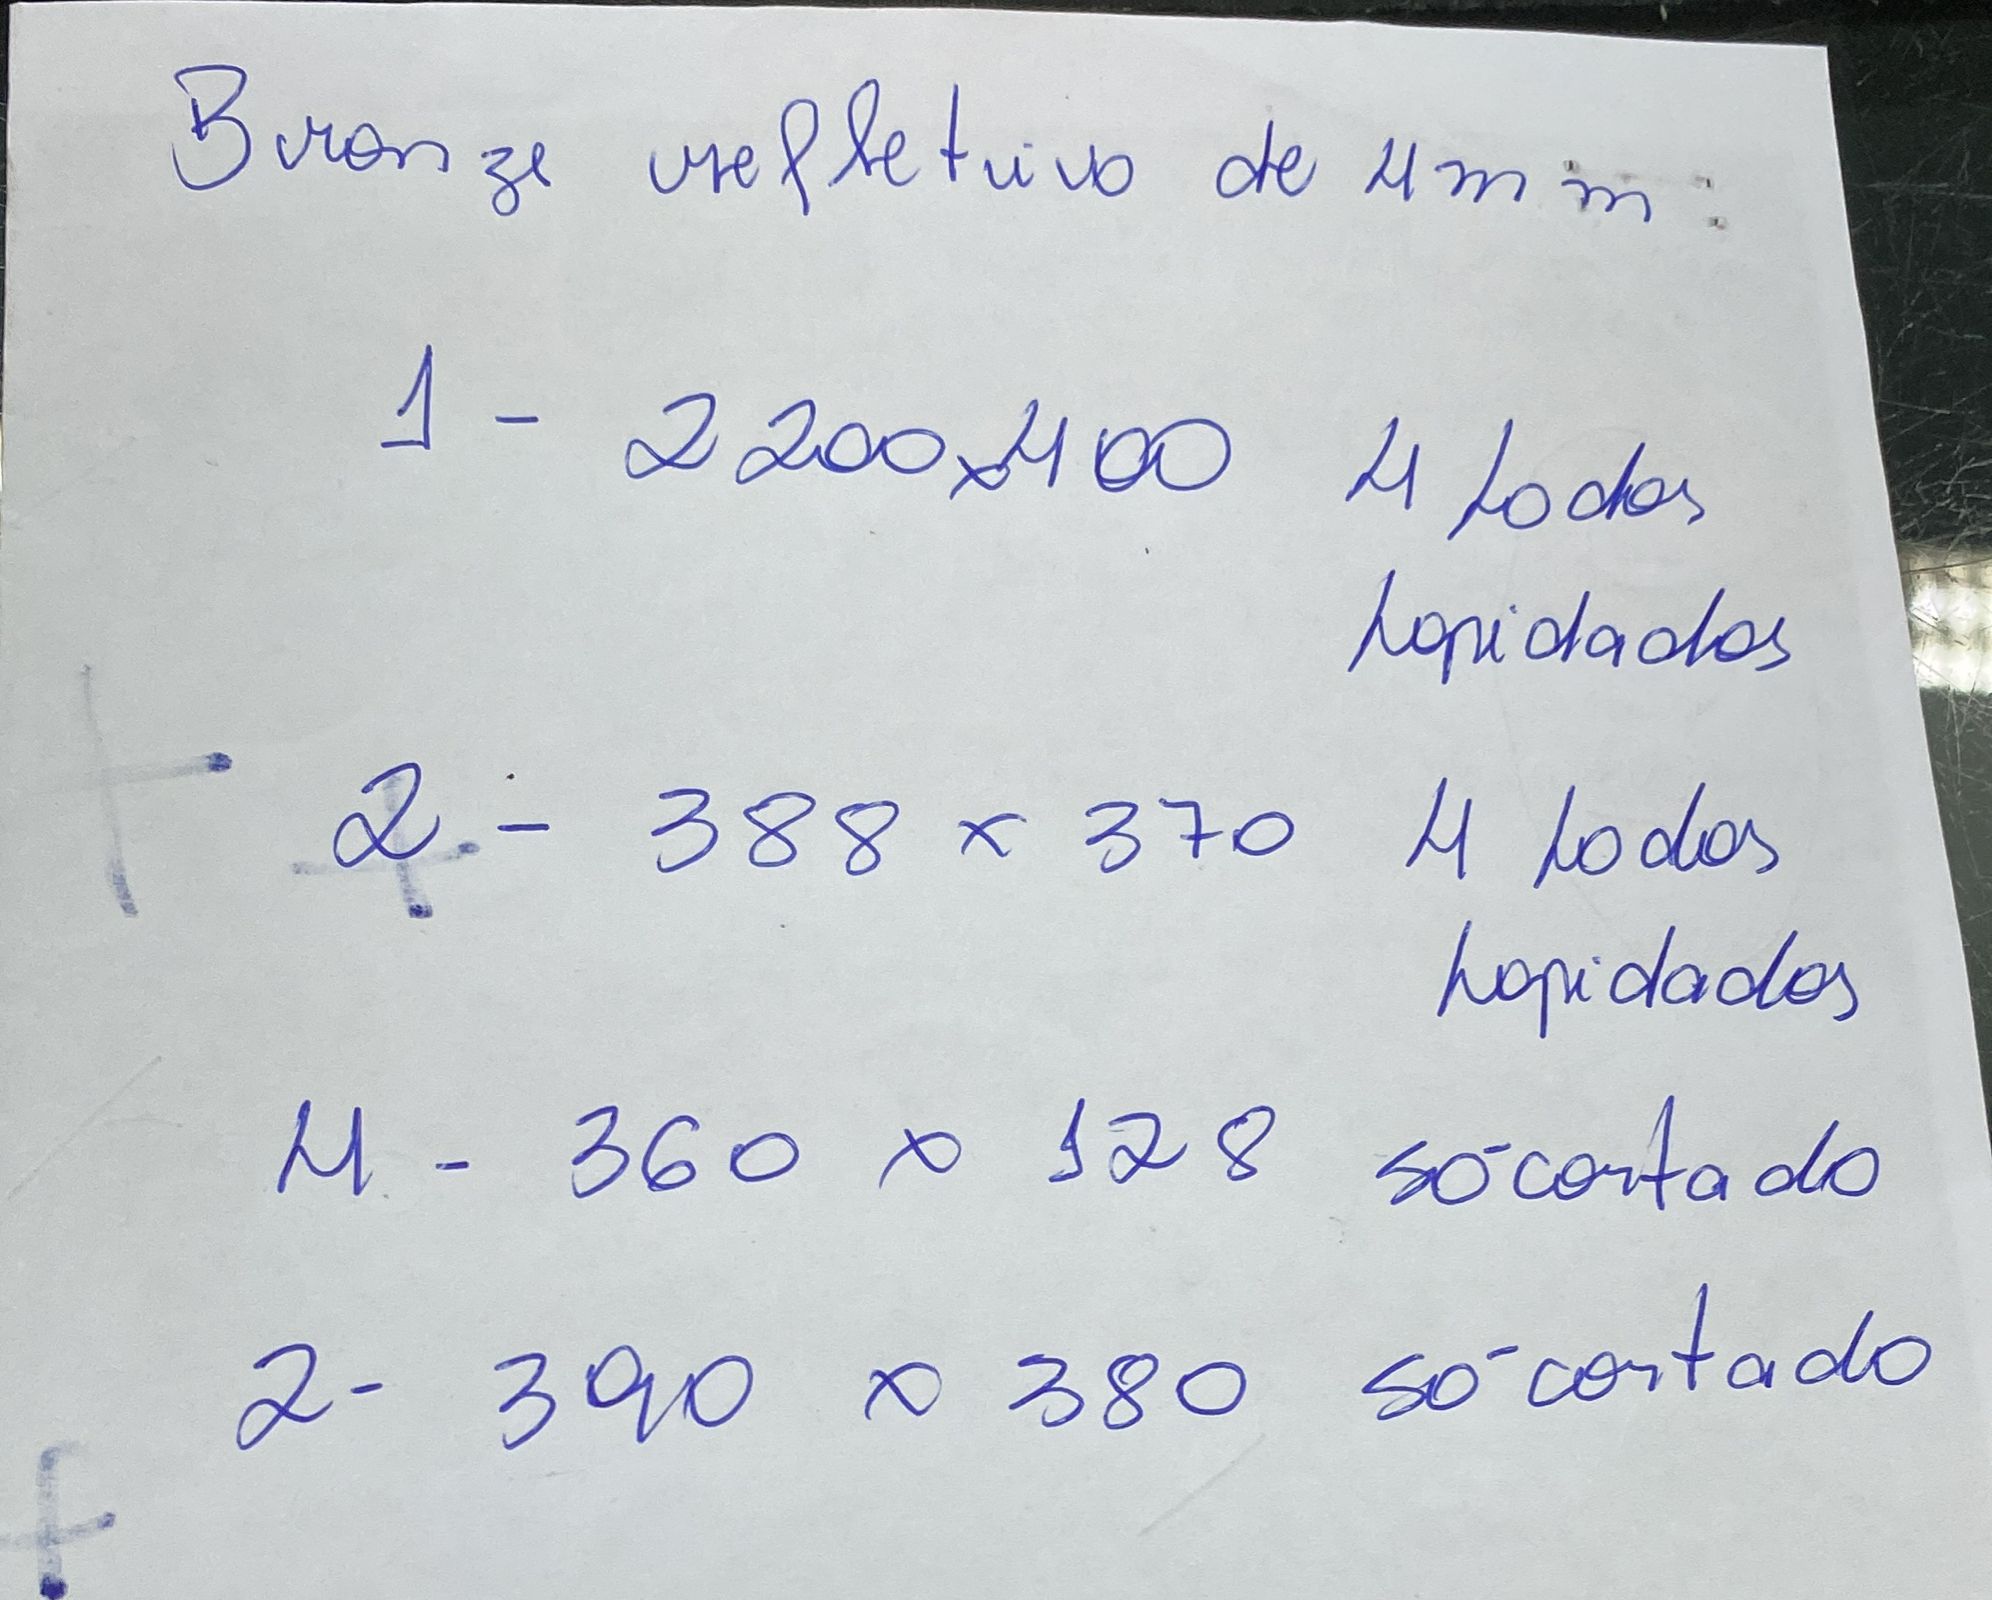 Bronze refletivo de 4mm:
1 - 2200x400 4 lados
lapidados
2 - 388 x 370 4 lados
lapidados
4 - 360 x 128 só cortado
2 - 390 x 380 só cortado